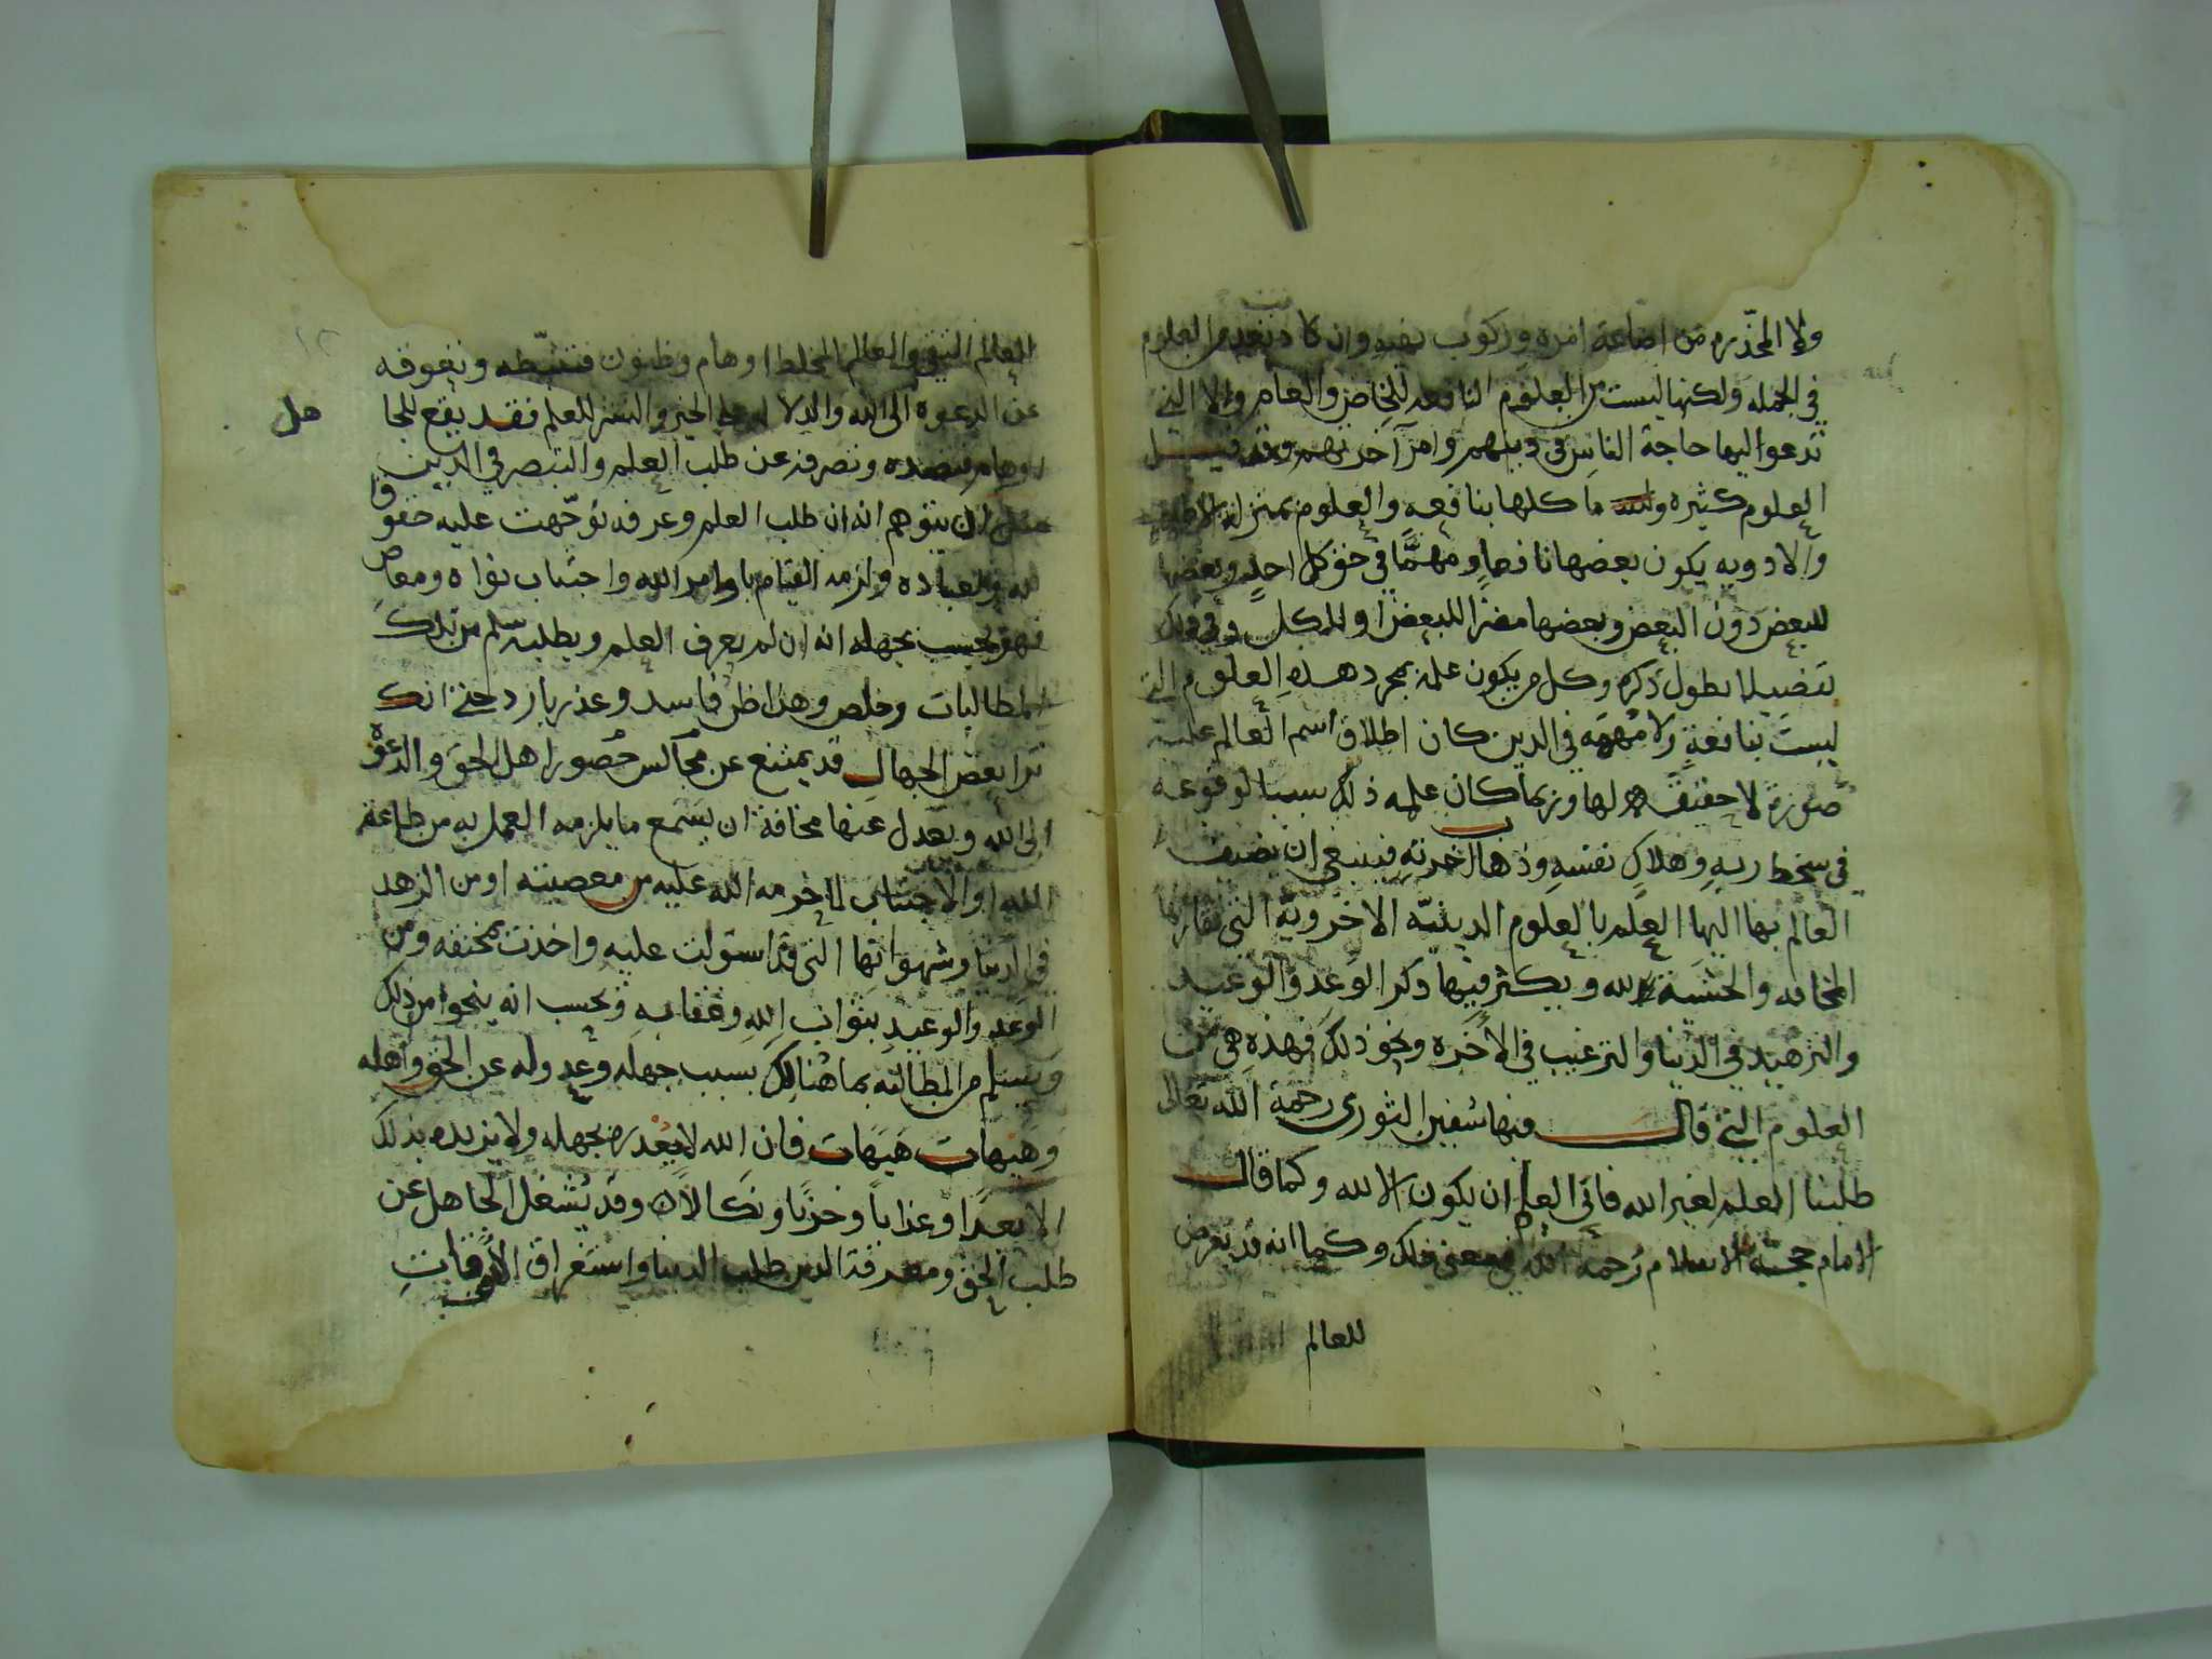 ولا المحذره من اضاعة امره وركوب نهيه وان كانت تعد من العلوم
في الجمله ولكنها ليست من العلوم النافعه للخاص والعام ولا التي
تدعوا اليها حاجة الناس في دينهم وامر آخرتهم وقد قيل
العلوم كثيره وليس ما كلها بنافعه والعلوم بمنزلة الاطعمه
والادويه يكون بعضها نافعا ومهمًّا في حق كل احدٍ وبعضها
للبعض دون البعض وبعضها مضرا للبعض او للكل وفي ذلك
تفصيلا يطول ذكره وكل من يكون علمه بمجرد هذه العلوم التي
ليست بنافعةٍ ولا مُهمّه في الدين كان اطلاق اسم العالم عليه
صورة لا حقيقة لها وربما كان علمه ذلك سببا لوقوعه
في سخط ربهِ وهلاكِ نفسهِ وذهاب آخرتهِ فينبغي ان يضيف
العالم بها اليها العلم بالعلوم الدينيّه الاخرويّة التي تقارنها
المخافه والخشية لله ويكثر فيها ذكر الوعد والوعيد
والتزهيد في الدنيا والترغيب في الاخره ونحو ذلك فهذه هي من
العلوم التي قال فيها سفين الثوري رحمة الله تعالى
طلبنا العلم لغير الله فابى العلم ان يكون الا لله وكما قال
الامام حجة الاسلام رحمه الله في معنى ذلك وكما انه قد تعرض
للعالم
العالم التقي والعالم المخلط اوهام وظنون فتثبّطه وتعوقه
عن الدعوة الى الله والدلاله على الخير والنشر للعلم فقد يقع للجا
هل
اوهام فتصده وتصرفه عن طلب العلم والتبصر في الدين
مثل ان يتوهم انه ان طلب العلم وعرفه توجّهت عليه حقوق
لله ولعباده ولزمه القيام باوامر الله واجتناب نواه ومعاص
فهو يحسب بجهله انه ان لم يعرف العلم ويطلبه سلم من تلك
المطالبات وخلص وهذا ظن فاسد وعذر بارد حتى انك
ترا بعض الجهال قد يمتنع عن مجالس حُضور اهل الحق والدعوة
الى الله ويعدل عنها مخافة ان يسمع ما يلزمه العمل به من طاعة
الله او الاجتناب لما حرمه الله عليه من معصيته او من الزهد
في الدنيا وشهواتها التي قد استولت عليه واخذت بمخنقه ومن
الوعد والوعيد بثواب الله وعقابه ويحسب انه ينجوا من ذلك
ويسلم من المطالبه بما هنالك بسبب جهله وعدوله عن الحق واهله
وهيهات هيهات فان الله لا يعذره بجهله ولا يزيده بذلك
الا بعدًا وعذاباً وخزيًا ونكالاً وقد يشغل الجاهل عن
طلب الحق ومعرفة الدين طلب الدنيا واستغراق الاوقاتِ